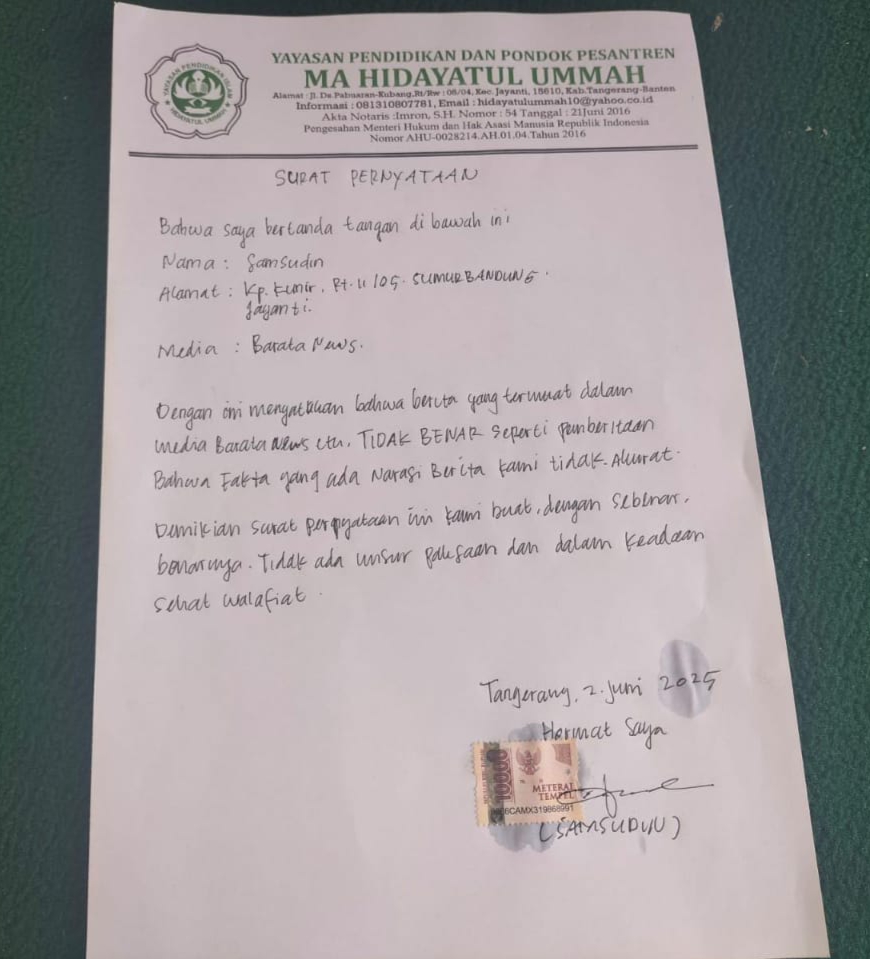 YAYASAN PENDIDIKAN DAN PONDOK PESANTREN
MA HIDAYATUL UMMAH
Alamat : Jl. Ds. Pabuaran-Kubang,Rt/Rw : 08/04, Kec. Jayanti, 15610, Kab.Tangerang-Banten
Informasi : 081310807781, Email : hidayatulummah10@yahoo.co.id
Akta Notaris :Imron, S.H. Nomor : 54 Tanggal : 21Juni 2016
Pengesahan Menteri Hukum dan Hak Asasi Manusia Republik Indonesia
Nomor AHU-0028214.AH.01.04.Tahun 2016
YAYASAN PENDIDIKAN ISLAM
HIDAYATUL UMMAH
SURAT PERNYATAAN
Bahwa saya bertanda tangan di bawah ini
Nama : Samsudin
Alamat : Kp. Kunir, Rt. 11/05. SUMURBANDUNG.
Jayanti.
Media : Barata News.
Dengan ini menyatakan bahwa berita yang termuat dalam
media Barata News itu, TIDAK BENAR seperti pemberitaan
Bahwa Fakta yang ada Narasi Berita kami tidak Akurat.
Demikian surat pernyataan ini kami buat, dengan sebenar,
benarnya. Tidak ada unsur paksaan dan dalam keadaan
sehat walafiat.
Tangerang, 2. Juni 2025
Hormat Saya
10000
METERAI
TEMPEL
CAMX319868991
(SAMSUDIN)